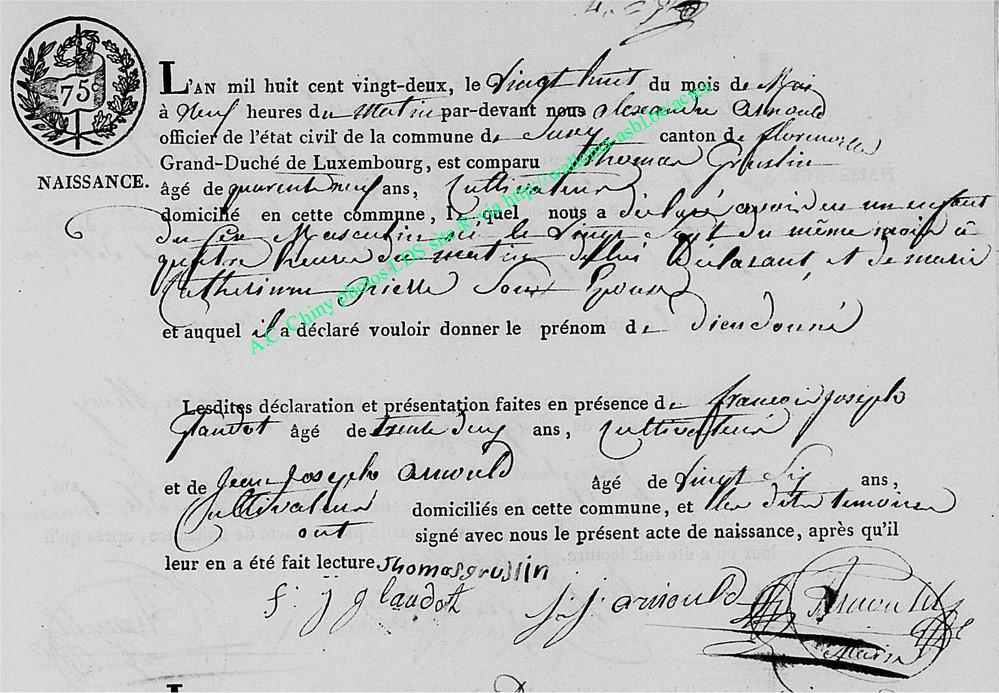 75c
NAISSANCE.
L'AN mil huit cent vingt-deux, le vingt huit du mois de Mai
à neuf heures du matin par-devant nous alexandre arnould
officier de l'état civil de la commune de Suxy canton de florenville
Grand-Duché de Luxembourg, est comparu Thomas Gruslin
âgé de quarent neuf ans, Cultivateur
domicilié en cette commune, le quel nous a déclaré avoir eu un enfant
du sexe Masculin né le vingt Sept du même mois à
quatre heures du matin de lui Déclarant et de marie
Catherinne pierre Son Epouse
et auquel il a déclaré vouloir donner le prénom de Dieudonné
Lesdites déclaration et présentation faites en présence de francois joseph
Glaudot âgé de trente deux ans, Cultivateur
et de Jean joseph arnould âgé de vingt Six ans,
Cultivateur domiciliés en cette commune, et les dits temoins
ont signé avec nous le présent acte de naissance, après qu'il
leur en a été fait lecture Thomas gruslin
f. j glaudot j. j. arnould Arnould
A.C. Chiny photos LDS site ® via http://wallonia.asbl.be/actes